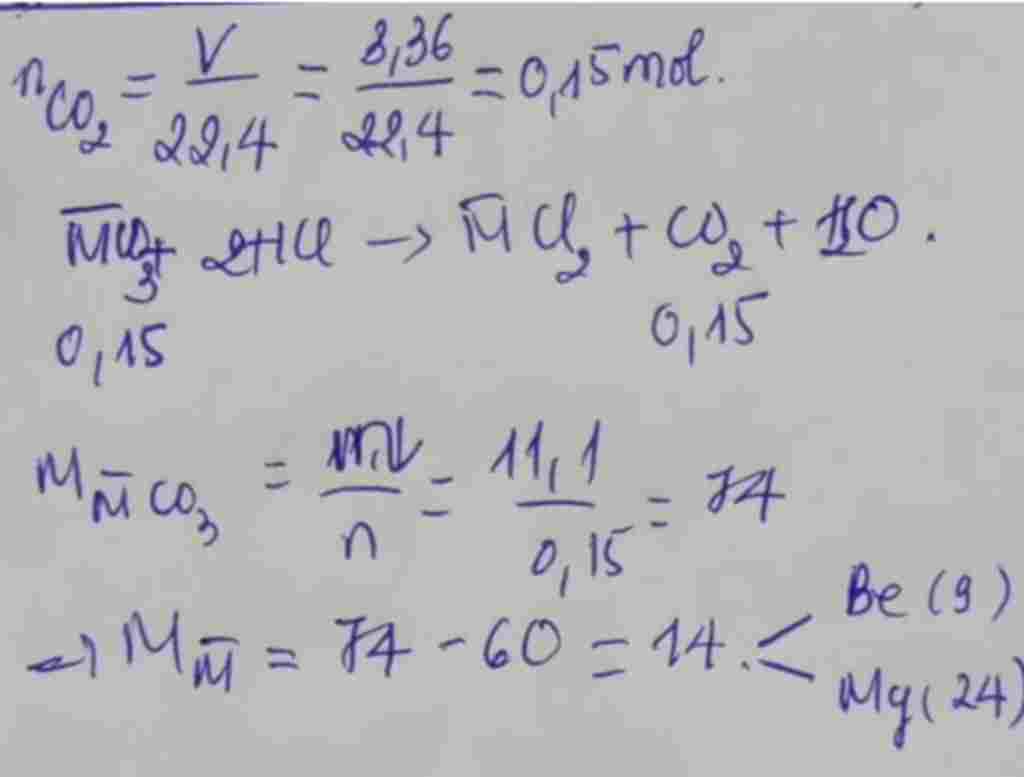 n_CO₂ = V/22,4 = 3,36/22,4 = 0,15 mol.
M̄CO₃ + 2HCl → M̄Cl₂ + CO₂ + H₂O.
0,15 0,15
M_M̄CO₃ = m/n = 11,1/0,15 = 74
→ M_M̄ = 74 - 60 = 14. < Be (9)
Mg (24)